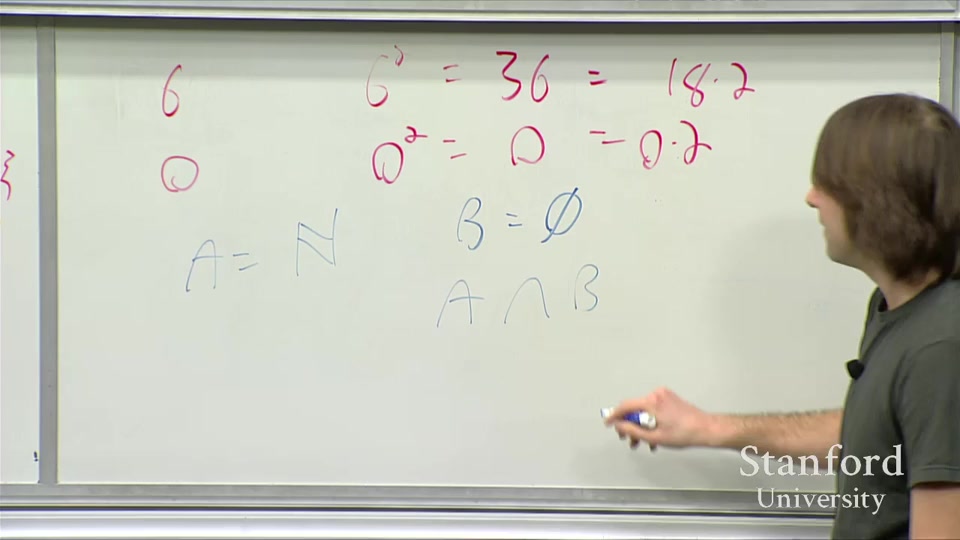 6 6² = 36 = 18·2
0 0² = 0 = 0·2
A = ℕ B = ∅
A ∩ B
Stanford
University